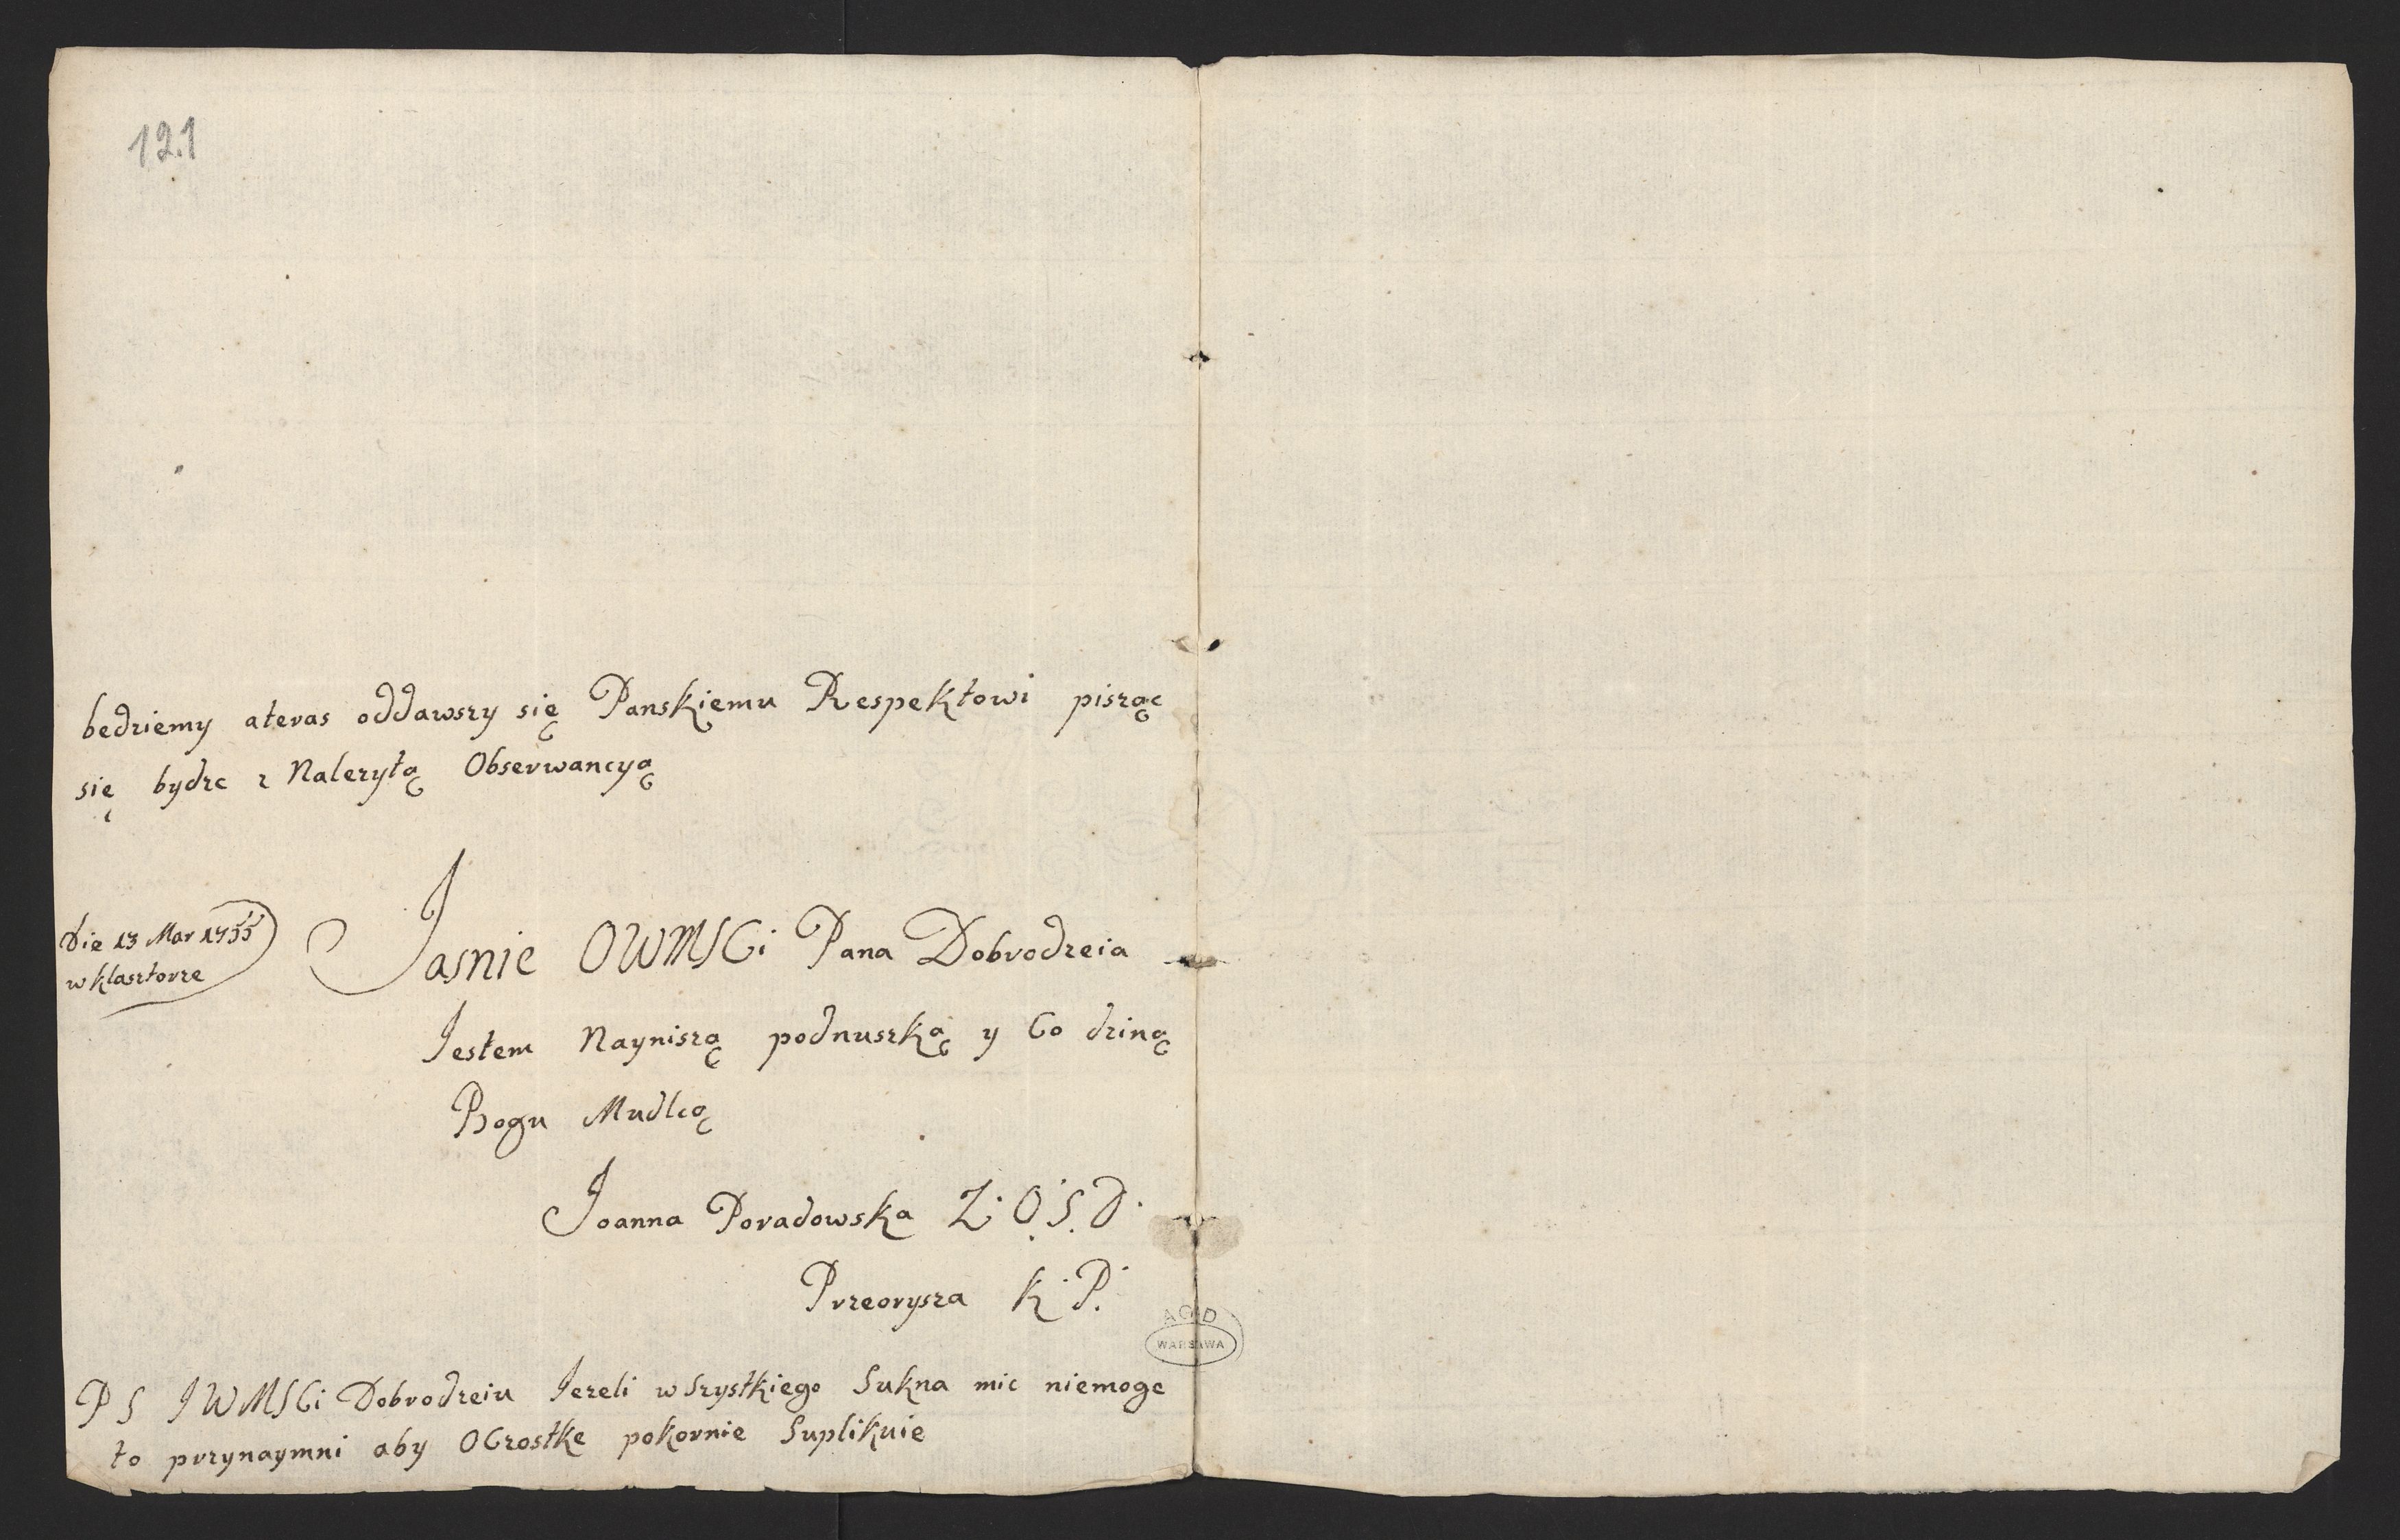 121
bedziemy ateras oddawszy się Panskiemu Respektowi pisząc
się bydzc z Nalezytą Obserwancyą
Die 13 Mar 1755
w klasztorze
Jasnie OWMSCi Pana Dobrodzeia
Jestem Nayniszą podnuszką y Co dziną
Bogu Mudlcą
Joanna Poradowska Z. O. S. D.
Przeorysza K. P.
AGAD
WARSZAWA
P S J W MSCi Dobrodzeiu Jezeli wszystkiego Sukna mic niemoge
to przynaymni aby OCzostke pokornie Suplikuie